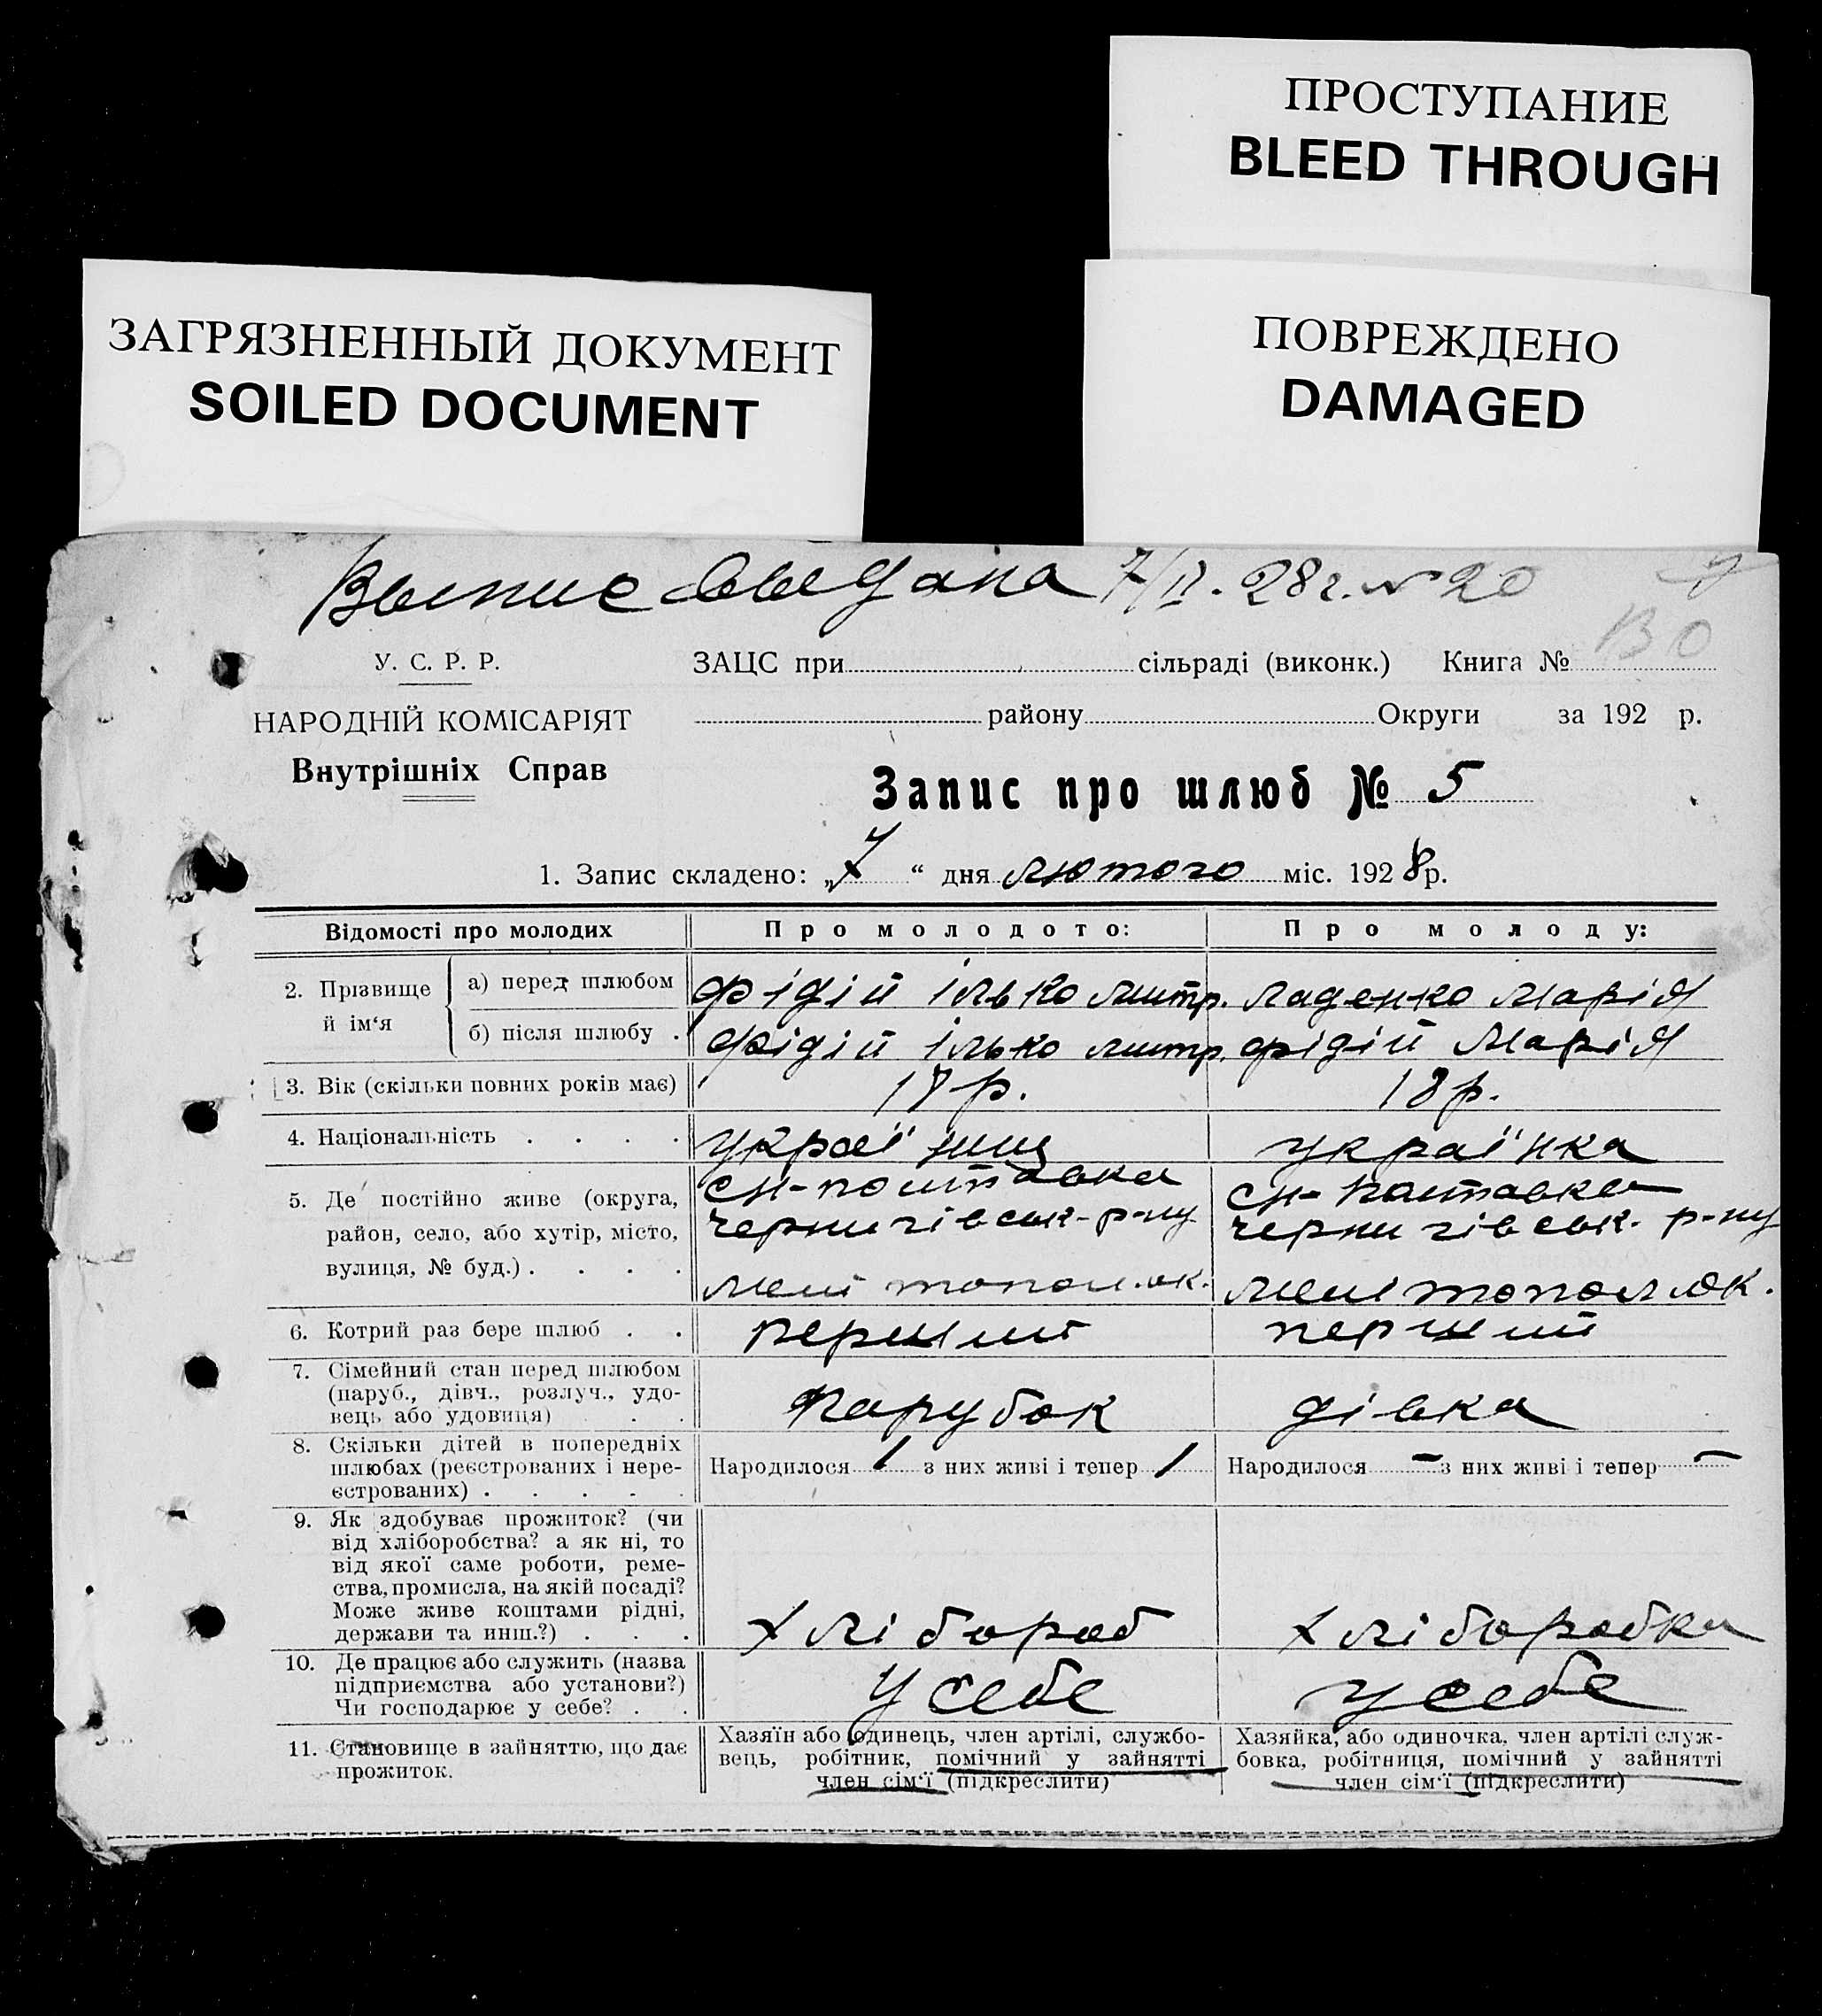 ПРОСТУПАНИЕ
BLEED THROUGH
ЗАГРЯЗНЕННЫЙ ДОКУМЕНТ
SOILED DOCUMENT
ПОВРЕЖДЕНО
DAMAGED
7/II. 28 г. № 20
У. С. Р. Р.
ЗАЦС при сільраді (виконк.) Книга №
НАРОДНІЙ КОМІСАРІЯТ
району Округи за 192 р.
Внутрішніх Справ
Запис про шлюб № 5
1. Запис складено: „7“ дня лютого міс. 1928 р.
Відомості про молодих Про молодото: Про молоду:
2. Прізвище й ім‘я
а) перед шлюбом Фідій Ілько Митр. Ладенко Марія
б) після шлюбу . Фідій Ілько Митр. Фідій Марія
3. Вік (скільки повних років має) 18 р. 18 р.
4. Національність . . . . українец українка
5. Де постійно живе (округа,
район, село, або хутір, місто,
вулиця, № буд.) . . . .
см-Поштавка
чернигівськ-р-ну
мелітопол. ок.
см-Поштавка
чернигівськ. р-ну
мелітопол ок.
6. Котрий раз бере шлюб . . перший перший
7. Сімейний стан перед шлюбом
(паруб., дівч., розлуч., удо-
вець або удовиця) . .
парубок дівка
8. Скільки дітей в попередніх
шлюбах (реєстрованих і нере-
єстрованих) . . . . .
Народилося 1 з них живі і тепер 1 Народилося — з них живі і тепер —
9. Як здобуває прожиток? (чи
від хліборобства? а як ні, то
від якої саме роботи, реме-
ства, промисла, на якій посаді?
Може живе коштами рідні,
держави та инш.?) . . .
хлібороб хліборобка
10. Де працює або служить (назва
підприємства або установи?)
Чи господарює у себе? . .
у себе у себе
11. Становище в зайняттю, що дає
прожиток.
Хазяїн або одинець, член артілі, службо-
вець, робітник, помічний у зайнятті
член сім‘ї (підкреслити)
Хазяйка, або одиночка, член артілі служ-
бовка, робітниця, помічний у зайнятті
член сім‘ї (підкреслити)